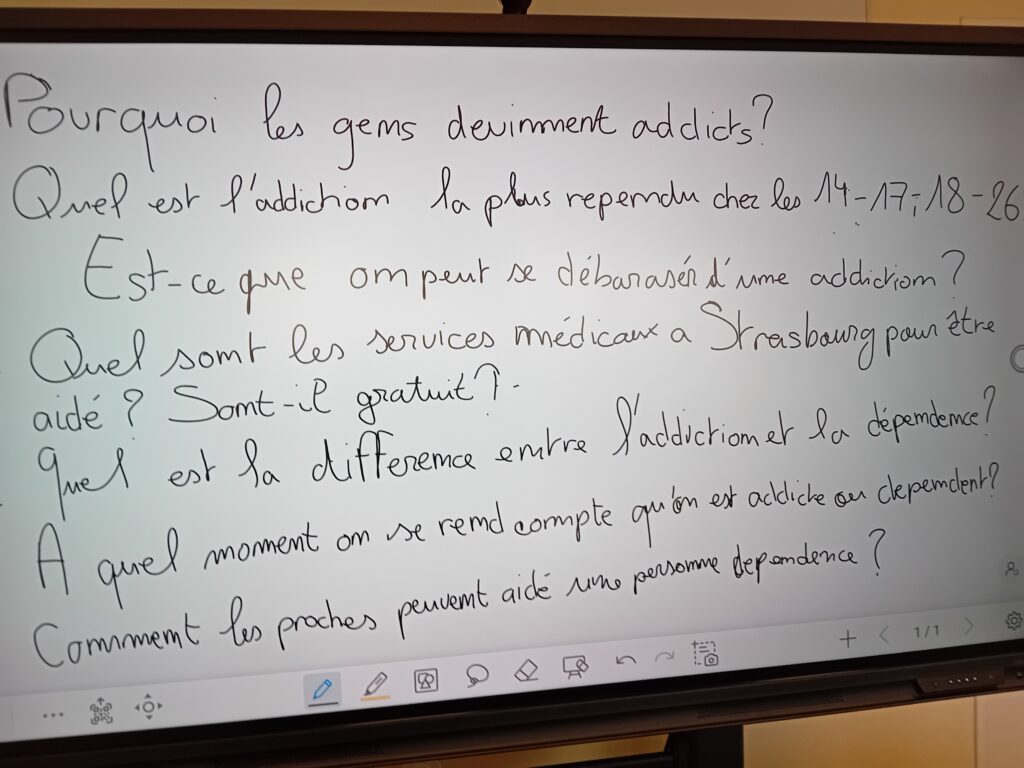 Pourquoi les gens deviennent addicts?
Quel est l'addiction la plus rependu chez les 14-17; 18-26
Est-ce que on peut se débarasér d'une addiction?
Quel sont les services médicaux a Strasbourg pour être
aidé? Sont-il gratuit?
Quel est la difference entre l'addiction et la dépendence?
A quel moment on se rend compte qu'on est addicte ou dependent?
Comment les proches peuvent aidé une personne dependence?
1/1